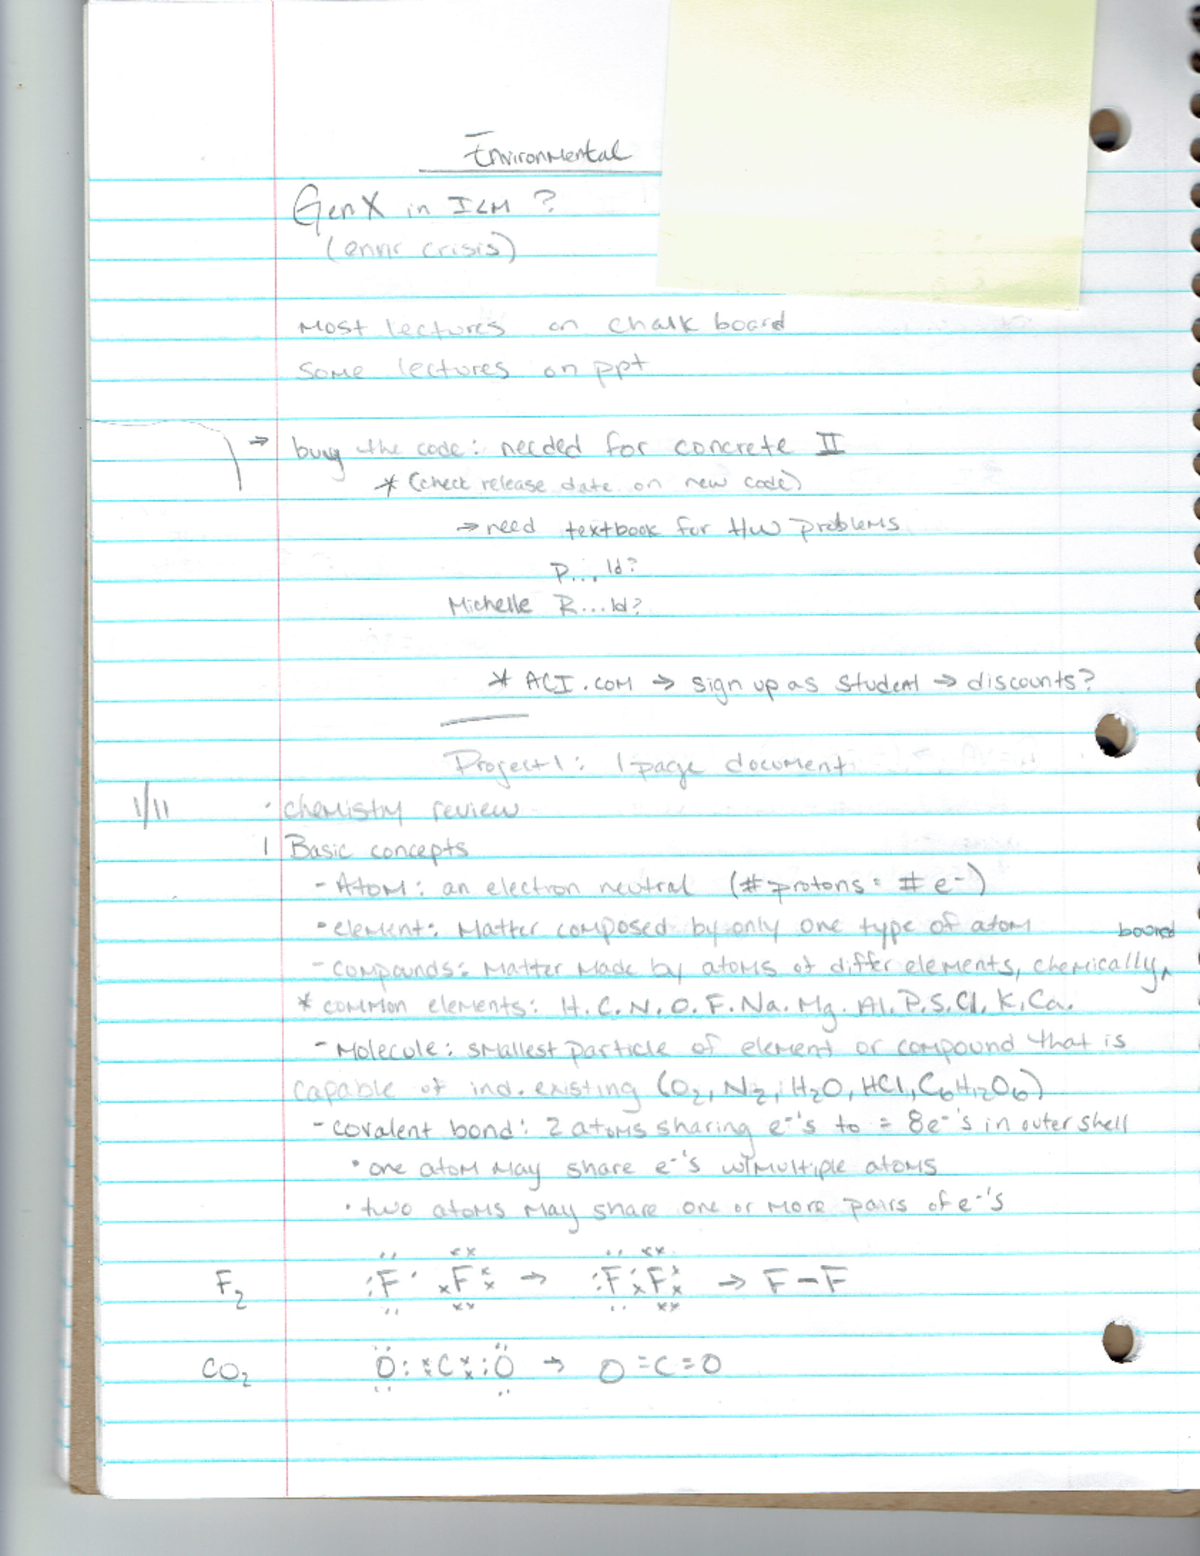 Environmental
GenX in ILM ?
(envir crisis)
Most lectures on chalk board
Some lectures on ppt
→ buy the code: needed for concrete II
* (check release date on new code)
→ need textbook for HW problems
P... ld?
Michelle R...ld?
* ACI.com → sign up as student → discounts?
Project 1: 1 page document
1/11 · chemistry review
1 Basic concepts
- Atom: an electron neutral (# protons = # e-)
• element: Matter composed by only one type of atom
board
- compounds: Matter Made by atoms of differ elements, chemically ^
* common elements: H. C. N. O. F. Na. Mg. Al. P. S. Cl. K. Ca.
- Molecule: smallest particle of element or compound that is
capable of ind. existing (O₂, N₂, H₂O, HCl, C₆H₁₂O₆)
- covalent bond: 2 atoms sharing e-'s to = 8e-'s in outer shell
• one atom may share e-'s w/multiple atoms
• two atoms may share one or more pairs of e-'s
F₂ F F → F F → F-F
CO₂ O C O → O=C=O